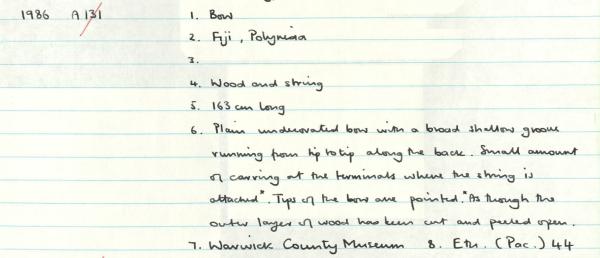 1986 A 131 1. Bow
2. Fiji, Polynesia
3.
4. Wood and string
5. 163 cm long
6. Plain undecorated bow with a broad shallow groove
running from tip to tip along the back. Small amount
of carving at the terminals where the string is
attached*. Tips of the bow are pointed. *As though the
outer layer of wood has been cut and peeled open.
7. Warwick County Museum 8. Eth. (Pac.) 44